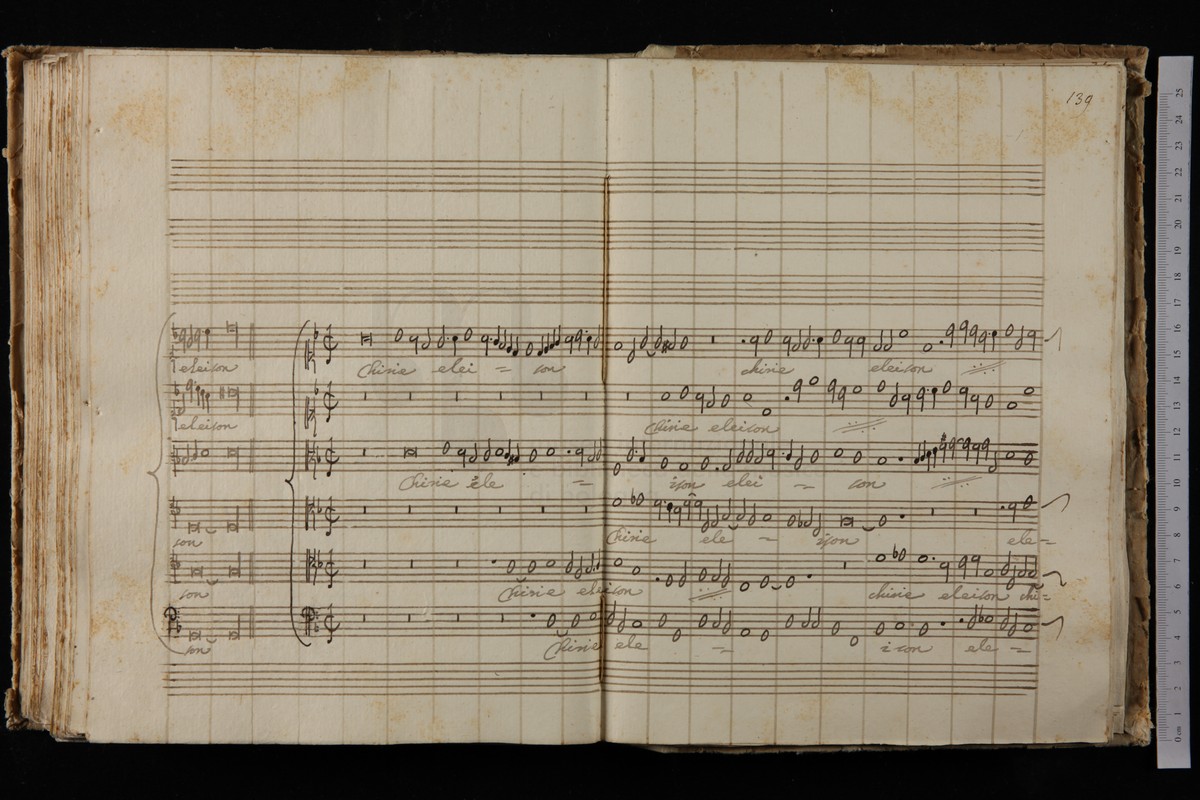 139
eleison Chirie elei = son chirie eleison
eleison Chirie eleison
Chirie ele = ison elei = son
son Chirie ele = ison ele =
son Chirie eleison chirie eleison chi =
son Chirie ele = ison ele =
0 cm 1 2 3 4 5 6 7 8 9 10 11 12 13 14 15 16 17 18 19 20 21 22 23 24 25